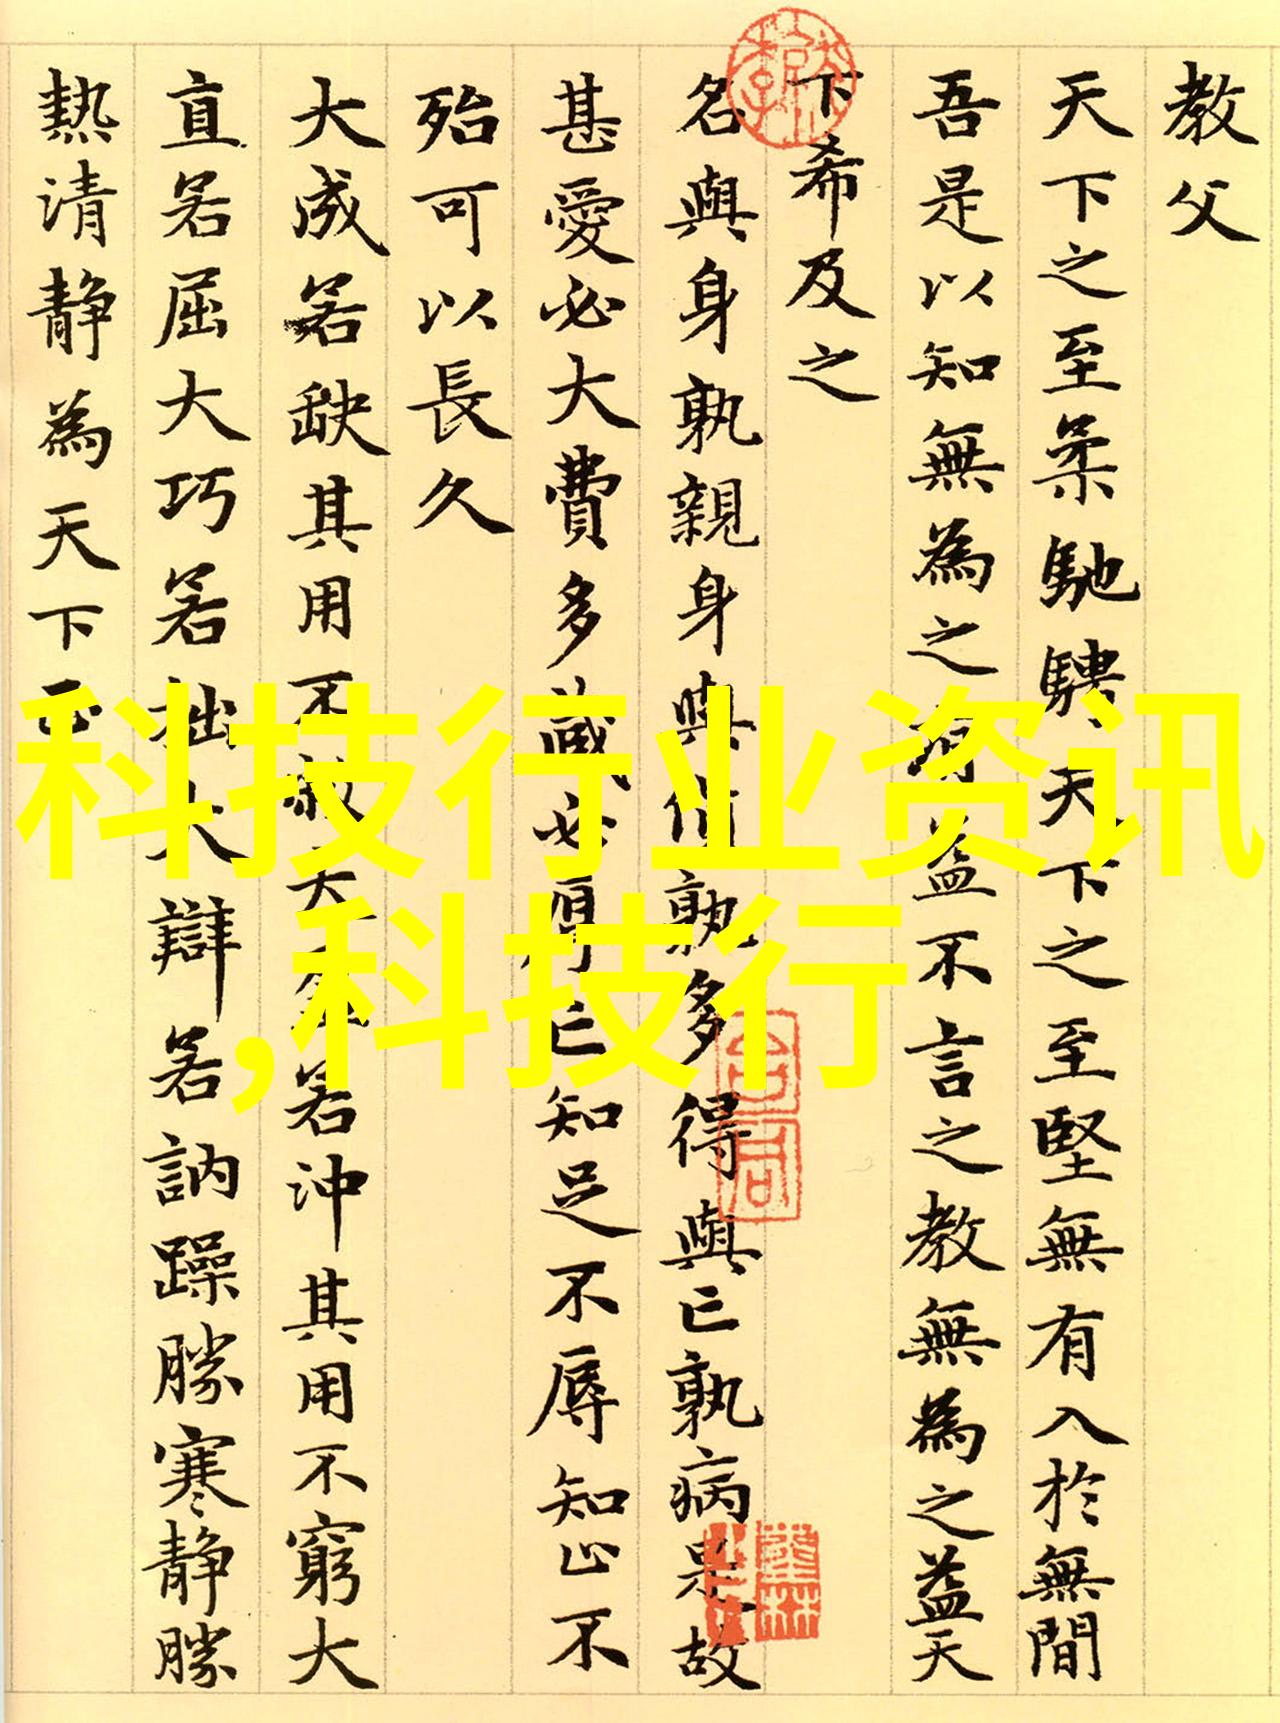 教父
天下之至柔馳騁天下之至堅無有入於無間
吾是以知無為之有益不言之教無為之益天
下希及之
名與身孰親身與貨孰多得與亡孰病是故
甚愛必大費多藏必厚亡知足不辱知止不
殆可以長久
大成若缺其用不敝大盈若沖其用不窮大
直若屈大巧若拙大辯若訥躁勝寒静勝
熱清静為天下正
科技行业资讯
,科技行